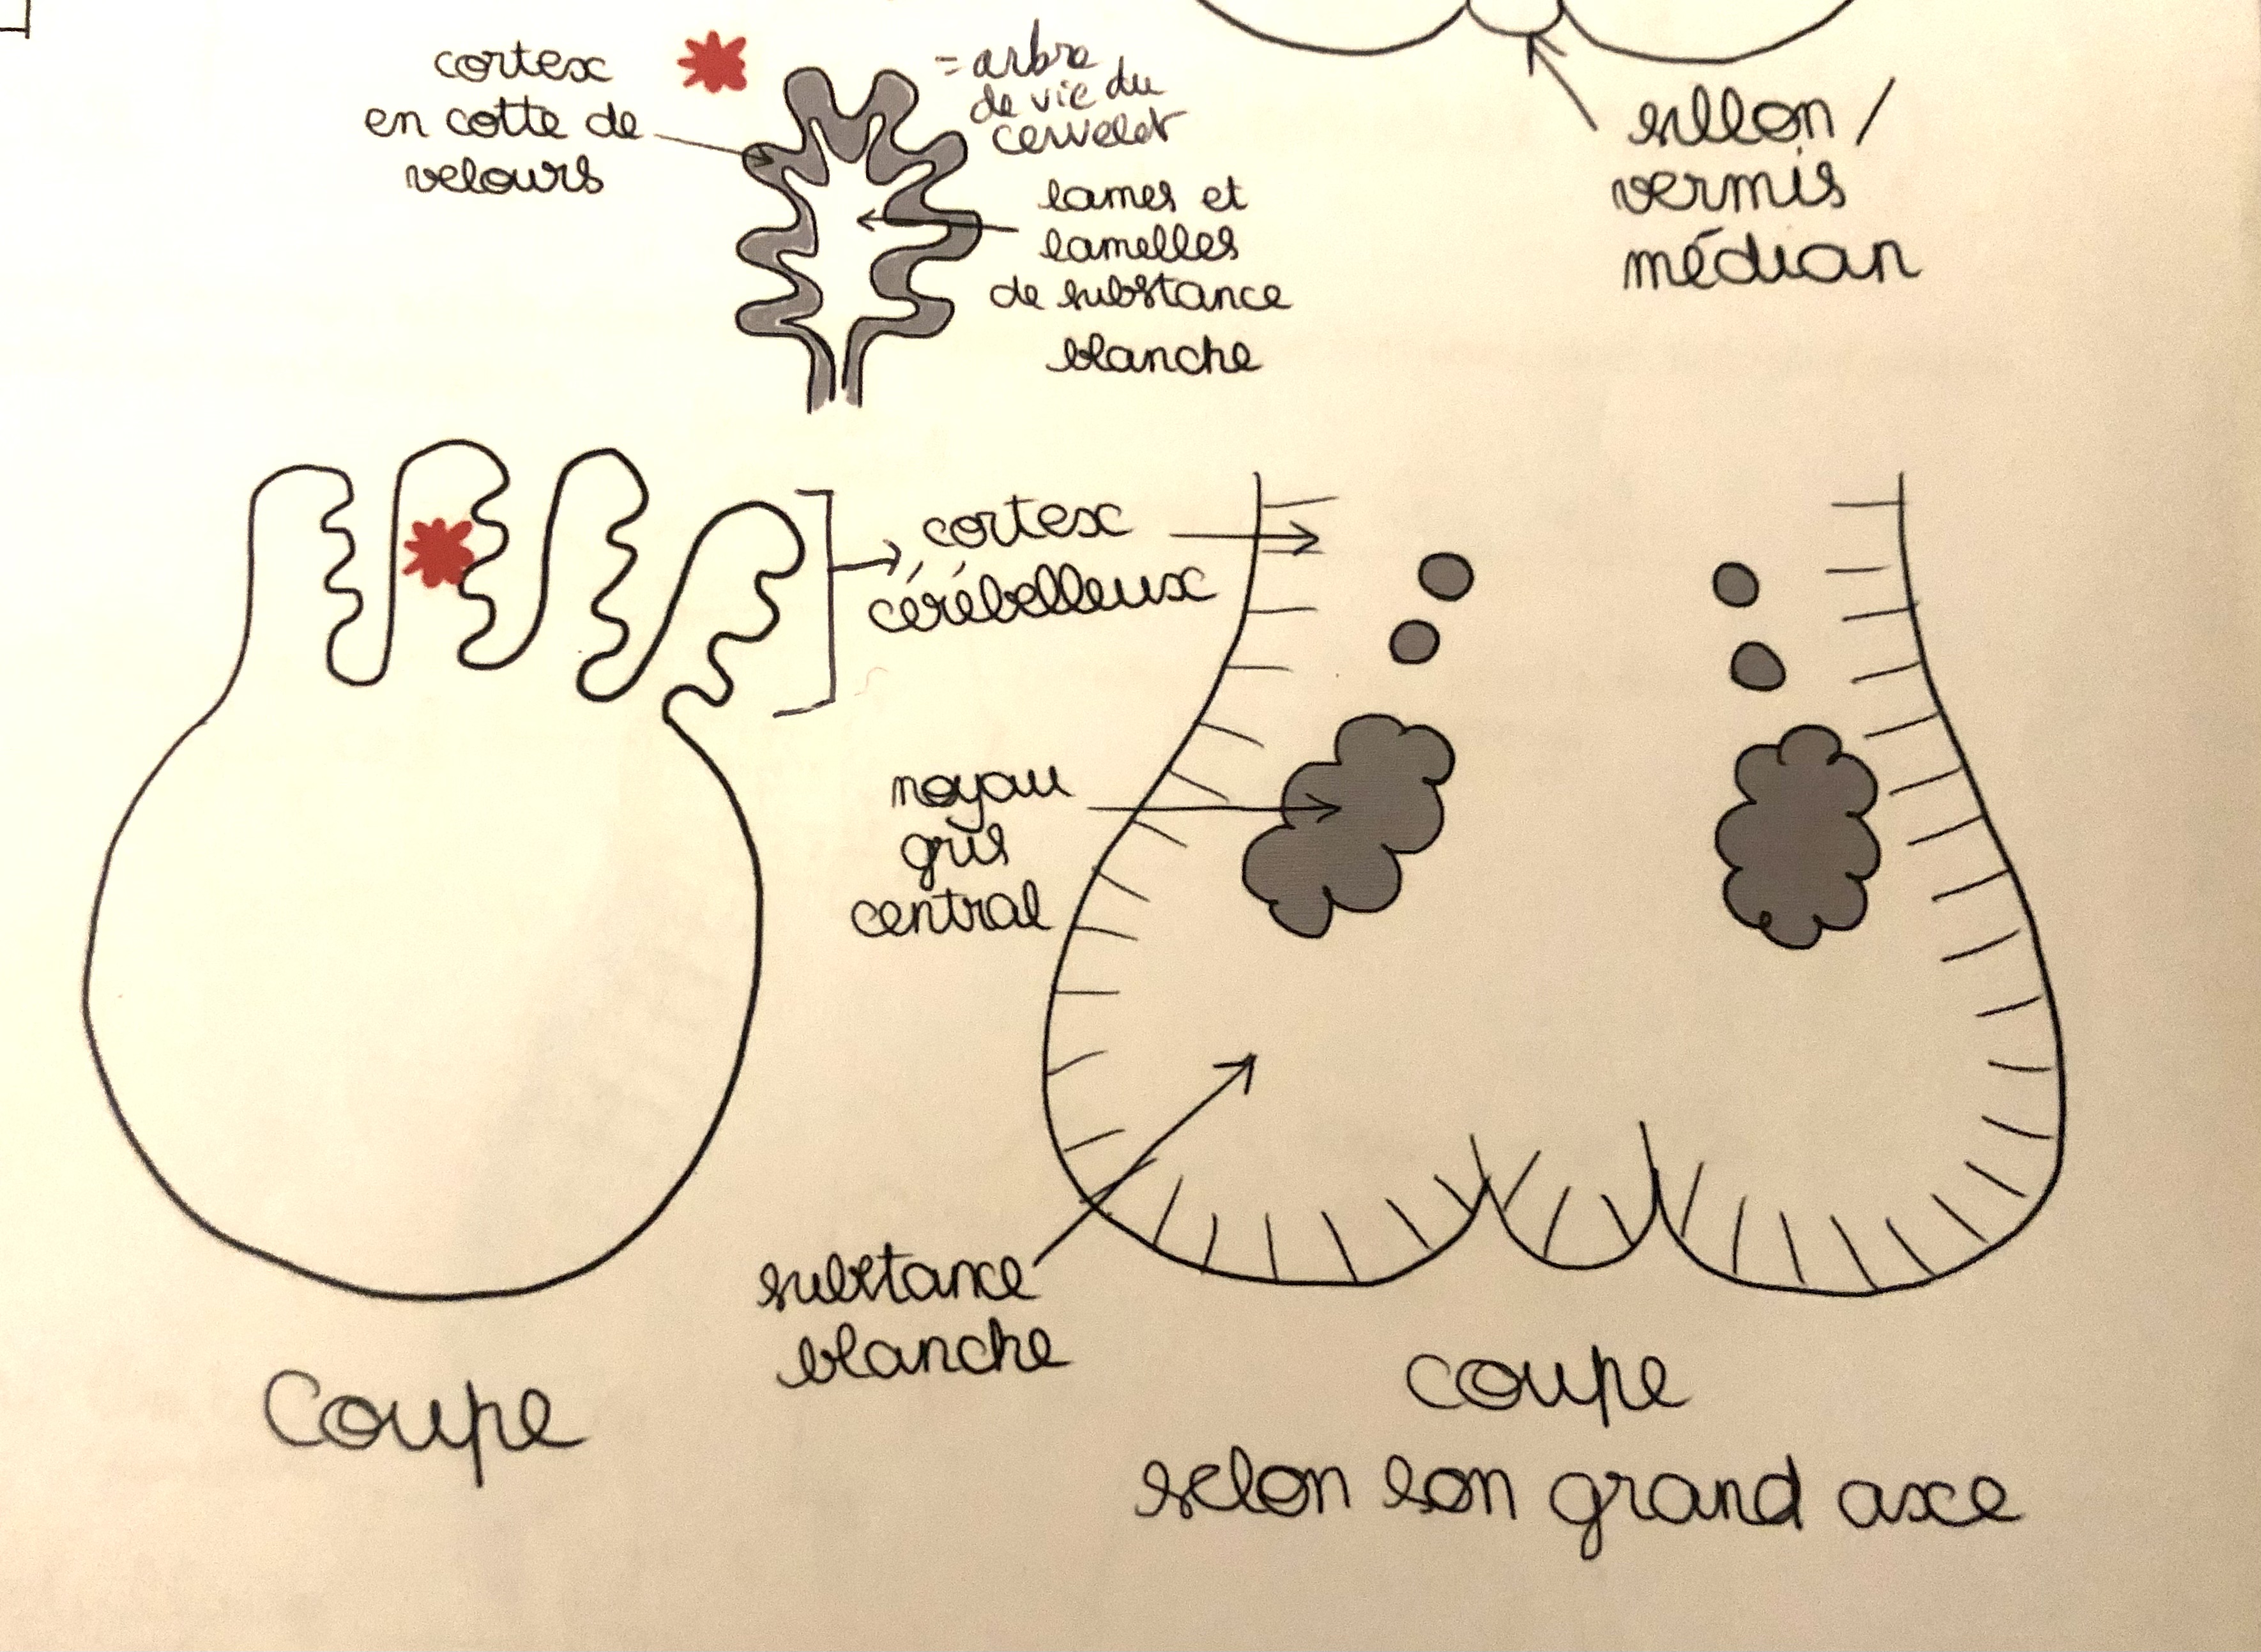 cortex
en cotte de
velours
= arbre
de vie du
cervelet
lames et
lamelles
de substance
blanche
sillon /
vermis
médian
cortex
cérébelleux
noyau
gris
central
substance
blanche
Coupe
coupe
selon son grand axe